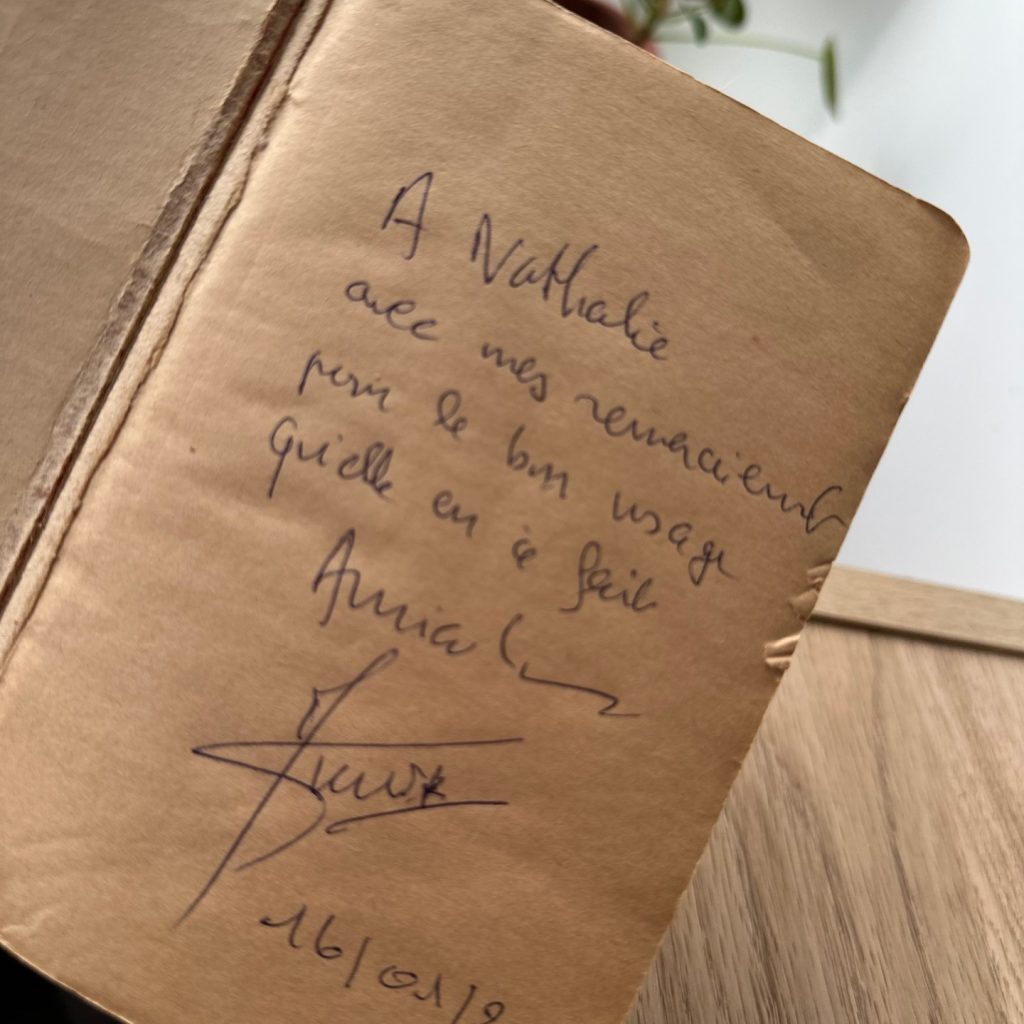 A Nathalie
avec mes remerciements
pour le bon usage
qu'elle en a fait
Amicalement
16/01/9